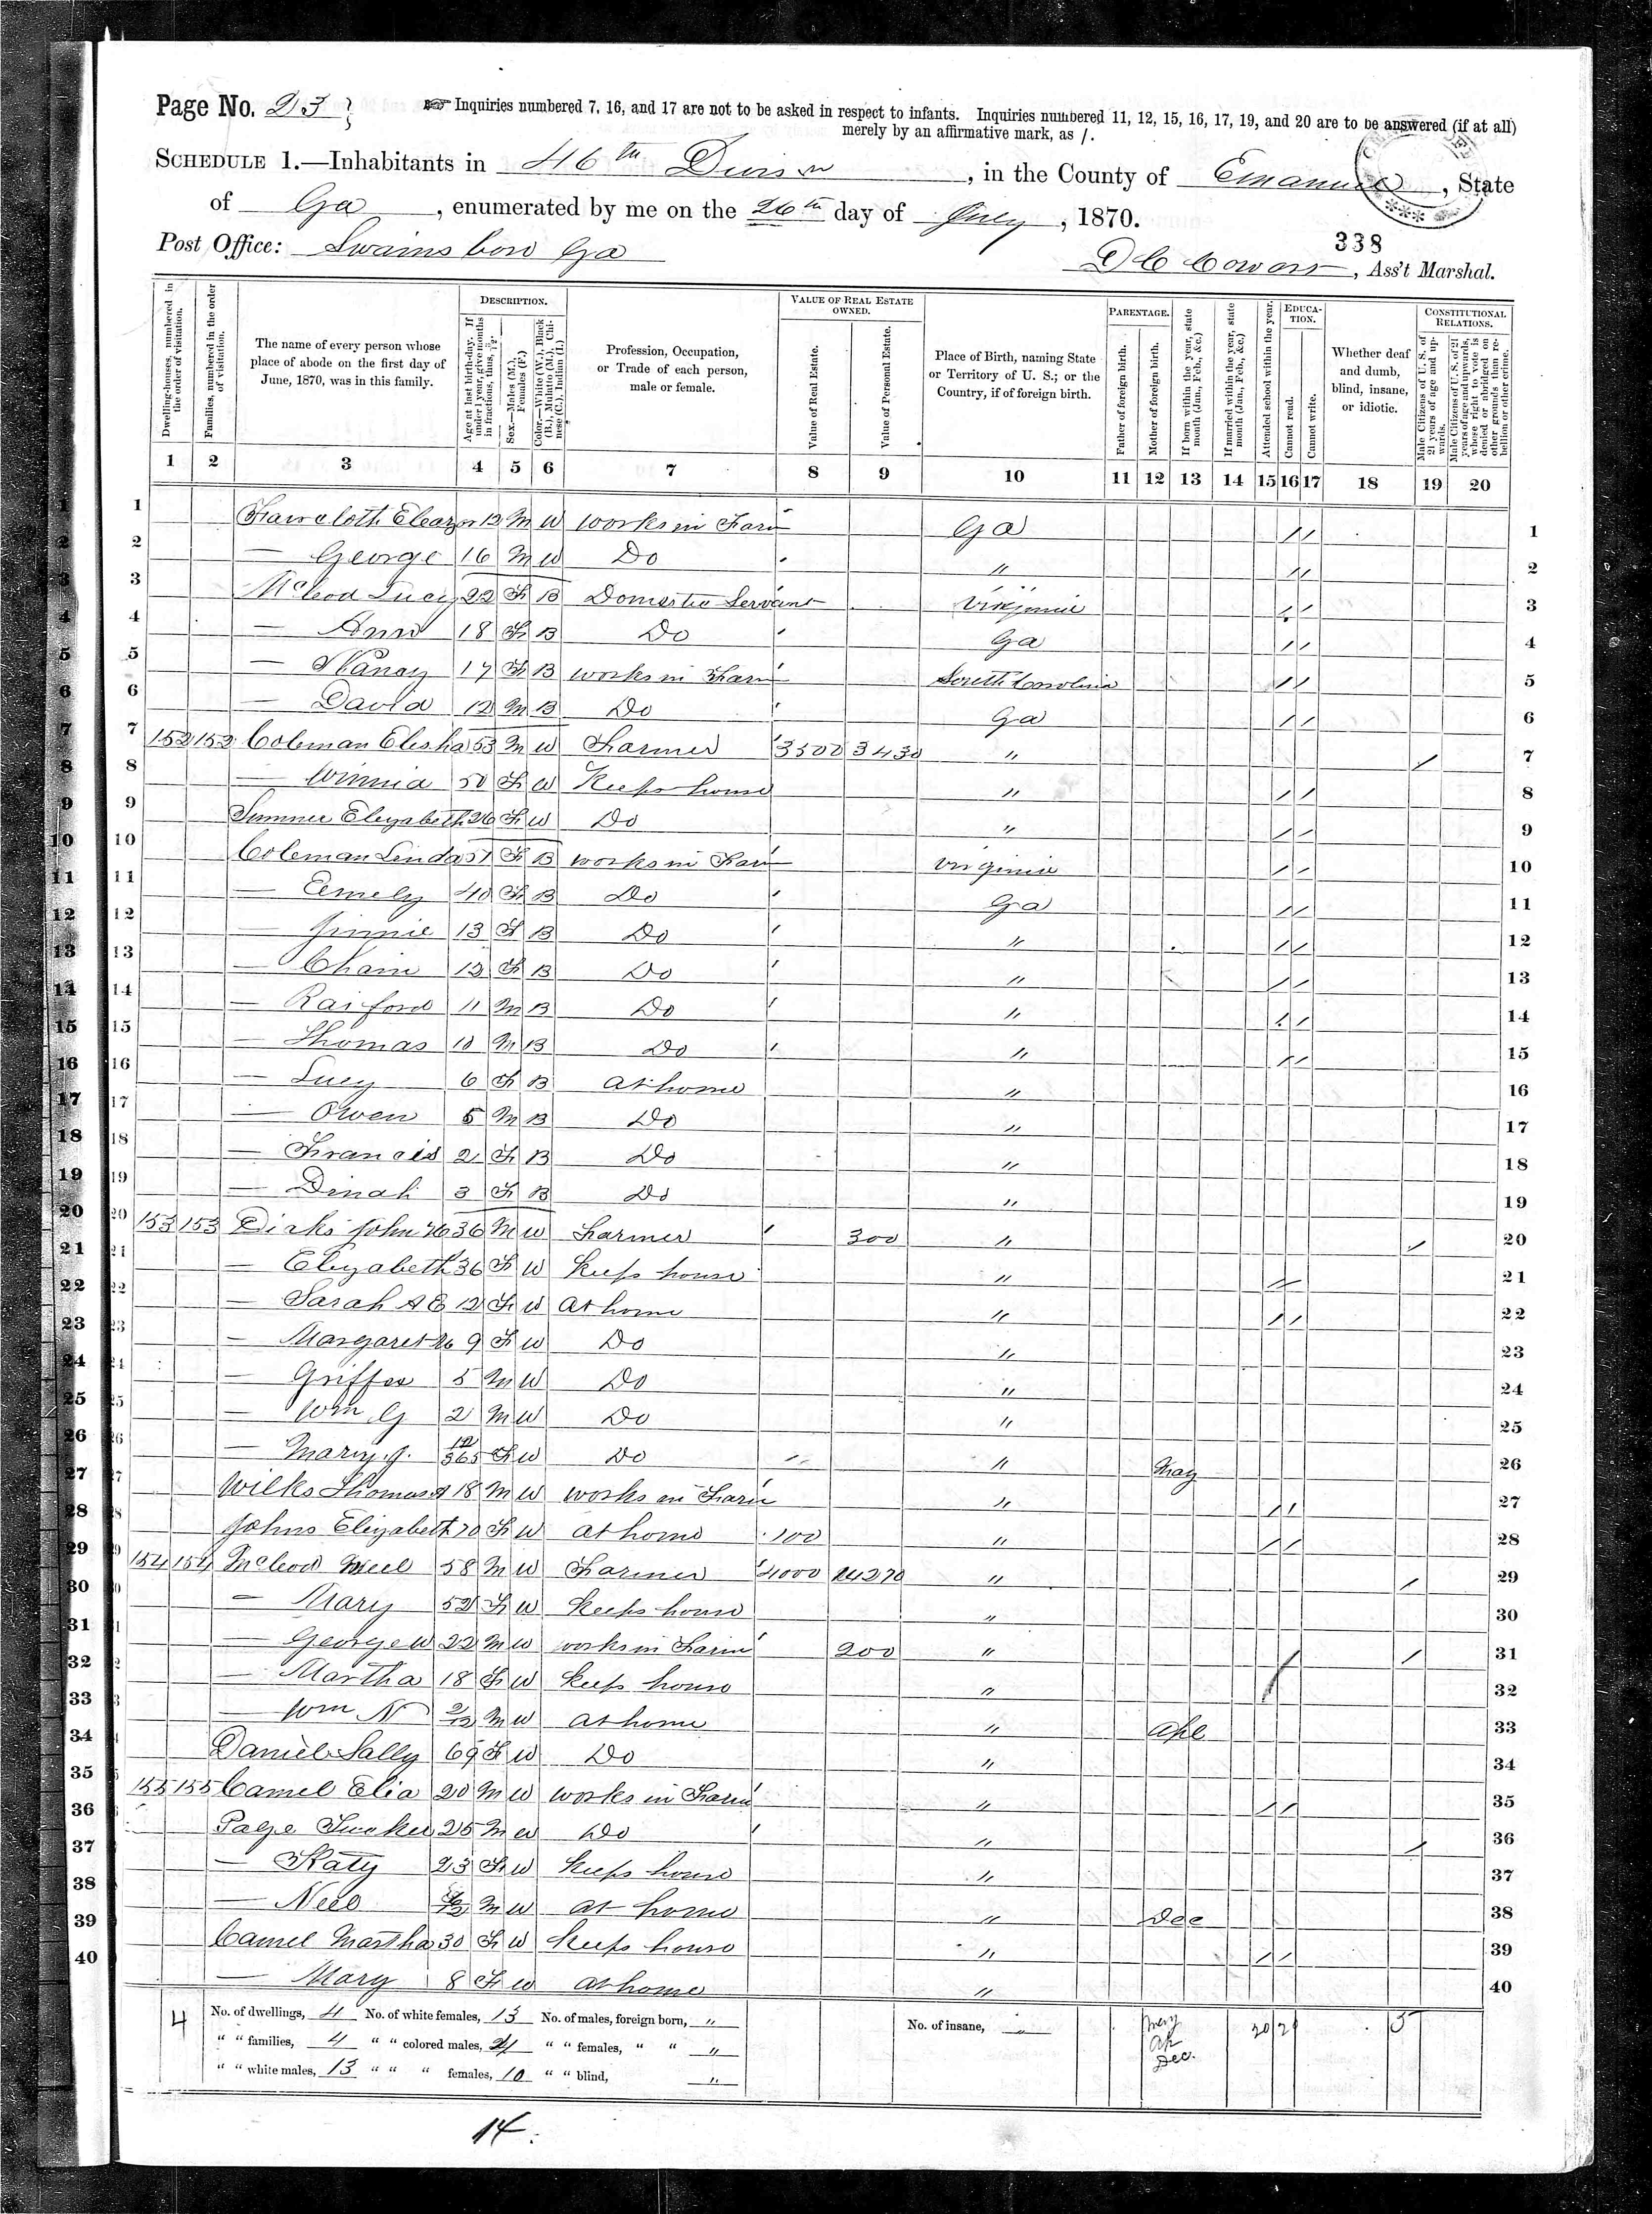 Page No. 23
Inquiries numbered 7, 16, and 17 are not to be asked in respect to infants. Inquiries numbered 11, 12, 15, 16, 17, 19, and 20 are to be answered (if at all)
merely by an affirmative mark, as /.
SCHEDULE 1.—Inhabitants in 46th , in the County of Emanuel, State
of Ga, enumerated by me on the 26th day of July, 1870.
338
Post Office: Swainsboro Ga
D C Cowart, Ass't Marshal.
Dwelling-houses, numbered in the order of visitation.
Families, numbered in the order of visitation.
The name of every person whose place of abode on the first day of June, 1870, was in this family.
DESCRIPTION.
Age at last birth-day. If under 1 year, give months in fractions, thus, 3/12.
Sex.—Males (M.), Females (F.)
Color.—White (W.), Black (B.), Mulatto (M.), Chinese (C.), Indian (I.)
Profession, Occupation, or Trade of each person, male or female.
VALUE OF REAL ESTATE OWNED.
Value of Real Estate.
Value of Personal Estate.
Place of Birth, naming State or Territory of U. S.; or the Country, if of foreign birth.
PARENTAGE.
Father of foreign birth.
Mother of foreign birth.
If born within the year, state month (Jan., Feb., &c.)
If married within the year, state month (Jan., Feb., &c.)
Attended school within the year.
EDUCATION.
Cannot read.
Cannot write.
Whether deaf and dumb, blind, insane, or idiotic.
CONSTITUTIONAL RELATIONS.
Male Citizens of U. S. of 21 years of age and upwards.
Male Citizens of U. S. of 21 years of age and upwards, whose right to vote is denied or abridged on other grounds than rebellion or other crime.
1 2 3 4 5 6 7 8 9 10 11 12 13 14 15 16 17 18 19 20
1 Faircloth M W works in Farm Ga / / 1
2 — George 16 M W Do " / / 2
3 McLeod Lucy 22 F B Domestic Servant Virginia / / 3
4 — Ann 18 F B Do Ga / / 4
5 — Nancy 17 F B works in Farm South Carolina / / 5
6 — David 12 M B Do Ga / / 6
7 152 152 Coleman Elisha 53 M W Farmer 3500 3430 " / 7
8 — Winnia 50 F W Keeps house " / / 8
9 Sumner Elizabeth 26 F W Do " / / 9
10 Coleman Linda 51 F B works in Farm Virginia / / 10
11 — Eemely 40 F B Do Ga / / 11
12 — Jinnie 13 F B Do " / / 12
13 — 12 F B Do " / / 13
14 — Raiford 11 M B Do " / / 14
15 — Thomas 10 M B Do " / / 15
16 — Lucy 6 F B at home " 16
17 — Owen 5 M B Do " 17
18 — Francis 2 F B Do " 18
19 — Dinah 3 F B Do " 19
20 153 153 John 36 M W Farmer 300 " / 20
21 — Elizabeth 36 F W Keeps house " / / 21
22 — Sarah A E 12 F W at home " / / 22
23 — Margaret 9 F W Do " 23
24 — Griffen 5 M W Do " 24
25 — Wm G 2 M W Do " 25
26 — Mary J. 12/365 F W Do " May 26
27 Wilks Thomas A 18 M W works in Farm " / / 27
28 Johns Elizabeth 70 F W at home 100 " / / 28
29 154 154 McLeod Neil 58 M W Farmer 4000 " / 29
30 — Mary 52 F W Keeps house " 30
31 — George W 22 M W works in Farm 200 " / 31
32 — Martha 18 F W Keeps house " / 32
33 — Wm N 2/12 M W at home " Apl 33
34 Daniel Sally 69 F W Do " 34
35 155 155 Camel Elia 20 M W works in Farm " / / 35
36 Page Tucker 25 M W Do " / 36
37 — Katy 23 F W Keeps house " 37
38 — Neel M W at home " Dec 38
39 Camel Martha 30 F W Keeps house " / / 39
40 — Mary 8 F W at home " 40
4
No. of dwellings, 4 No. of white females, 13 No. of males, foreign born, " No. of insane, "
" " families, 4 " " colored males, " " females, " " "
" " white males, 13 " " " females, 10 " " blind, "
May
Ap
Dec.
20 21
5
14